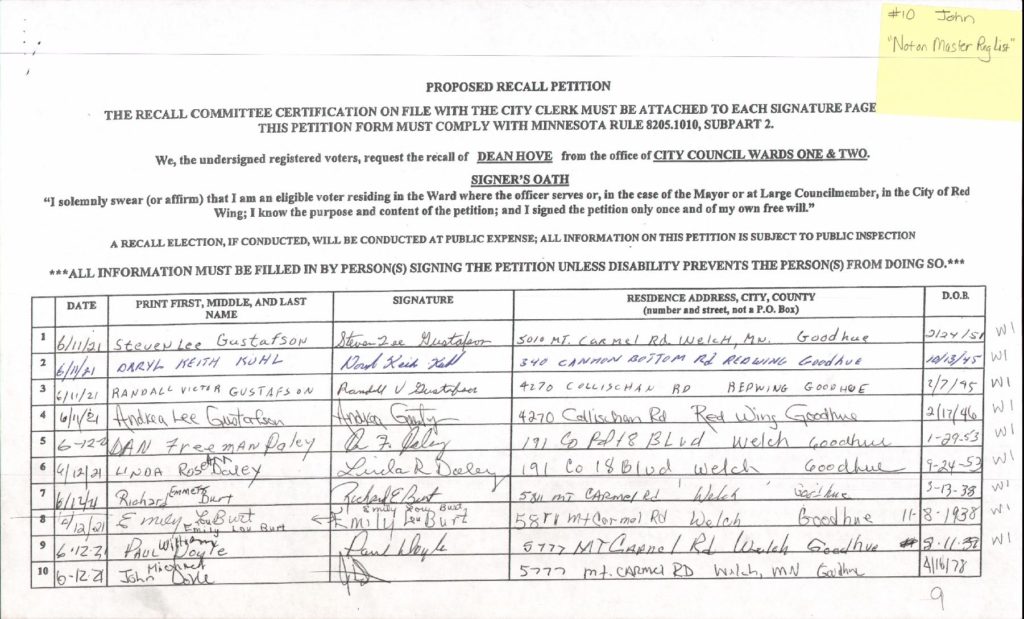 #10 John
"Not on Master Reg List"
PROPOSED RECALL PETITION
THE RECALL COMMITTEE CERTIFICATION ON FILE WITH THE CITY CLERK MUST BE ATTACHED TO EACH SIGNATURE PAGE
THIS PETITION FORM MUST COMPLY WITH MINNESOTA RULE 8205.1010, SUBPART 2.
We, the undersigned registered voters, request the recall of DEAN HOVE from the office of CITY COUNCIL WARDS ONE & TWO.
SIGNER'S OATH
"I solemnly swear (or affirm) that I am an eligible voter residing in the Ward where the officer serves or, in the case of the Mayor or at Large Councilmember, in the City of Red
Wing; I know the purpose and content of the petition; and I signed the petition only once and of my own free will."
A RECALL ELECTION, IF CONDUCTED, WILL BE CONDUCTED AT PUBLIC EXPENSE; ALL INFORMATION ON THIS PETITION IS SUBJECT TO PUBLIC INSPECTION
***ALL INFORMATION MUST BE FILLED IN BY PERSON(S) SIGNING THE PETITION UNLESS DISABILITY PREVENTS THE PERSON(S) FROM DOING SO.***
DATE PRINT FIRST, MIDDLE, AND LAST NAME SIGNATURE RESIDENCE ADDRESS, CITY, COUNTY (number and street, not a P.O. Box) D.O.B.
1 6/11/21 Steven Lee Gustafson Steven Lee Gustafson 5010 MT. Carmel Rd Welch, MN. Goodhue 2/24/51 W1
2 6/11/21 DARYL KEITH KUHL Daryl Keith Kuhl 340 CANNON BOTTOM Rd REDWING Goodhue 10/13/45 W1
3 6/11/21 RANDALL VICTOR GUSTAFSON Randall V Gustafson 4270 COLLISCHAN RD REDWING GOODHUE 2/7/45 W1
4 6/11/21 Andrea Lee Gustafson Andrea 4270 Collischan Rd Red Wing Goodhue 2/17/46 W1
5 6-12-2 DAN Freeman Daley D. F. Daley 191 Co Rd 18 BLvd Welch Goodhue 1-29-53 W1
6 6/12/21 LINDA Rose Ann Daley Linda R Daley 191 Co 18 Blvd Welch Goodhue 9-24-53 W1
7 6/12/21 Richard Emmett Burt Richard E Burt MT CARmel Rd Welch Goodhue 3-13-38 W1
8 6/12/21 Emily Lou Burt Emily Lou Burt Emily Lou Burt Emily Lou Burt Mt Carmel Rd Welch Goodhue 11-8-1938 W1
9 6-12-21 PAUL William Doyle Paul Doyle 5777 MT CARMEL Rd Welch Goodhue W1
10 6-12-21 John Michael Doyle 5777 mt. CARMEL RD Welch, MN Goodhue 4/16/78
9